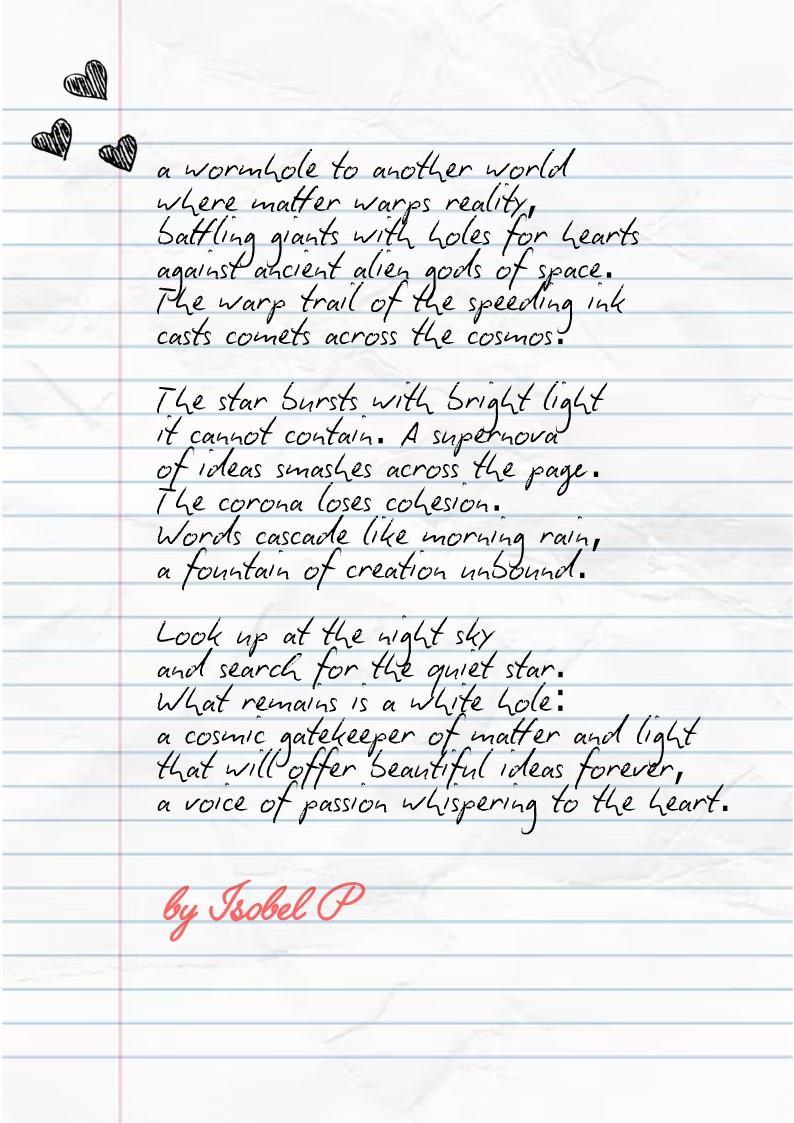 a wormhole to another world
where matter warps reality,
battling giants with holes for hearts
against ancient alien gods of space.
The warp trail of the speeding ink
casts comets across the cosmos.

The star bursts with bright light
it cannot contain. A supernova
of ideas smashes across the page.
The corona loses cohesion.
Words cascade like morning rain,
a fountain of creation unbound.

Look up at the night sky
and search for the quiet star.
What remains is a white hole:
a cosmic gatekeeper of matter and light
that will offer beautiful ideas forever,
a voice of passion whispering to the heart.

by Isobel P